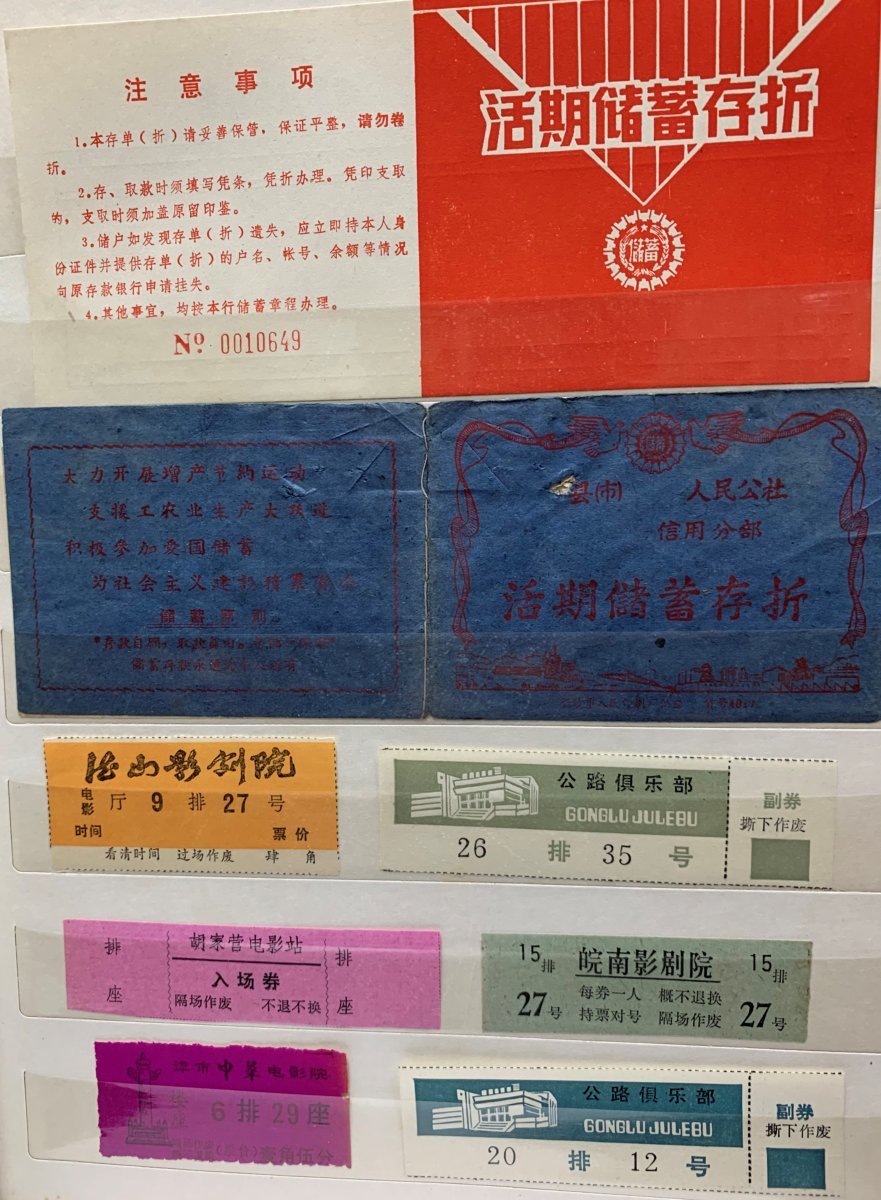 注意事项
1.本存单(折)请妥善保管，保证平整，请勿卷
折。
2.存、取款时须填写凭条，凭折办理。凭印支取
的，支取时须加盖原留印鉴。
3.储户如发现存单(折)遗失，应立即持本人身
份证件并提供存单(折)的户名、帐号、余额等情况
向原存款银行申请挂失。
4.其他事宜，均按本行储蓄章程办理。
№ 0010649
活期储蓄存折
储蓄
大力开展增产节约运动
支援工农业生产大跃进
积极参加爱国储蓄
为社会主义建设积累资金
儲蓄原则
儲蓄
县(市) 人民公社
信用分部
活期儲蓄存折
影剧院
电影 厅 9 排 27 号
时间 票价
看清时间 过场作废 肆角
公路俱乐部
GONGLU JULEBU
26 排 35 号
副券
撕下作废
排 座
胡家营电影站
入场券
隔场作废 不退不换
排 座
15排
27号
皖南影剧院
每券一人 概不退换
持票对号 隔场作废
15排
27号
市中华电影院
楼座
6排29座
壹角伍分
公路俱乐部
GONGLU JULEBU
20 排 12 号
副券
撕下作废